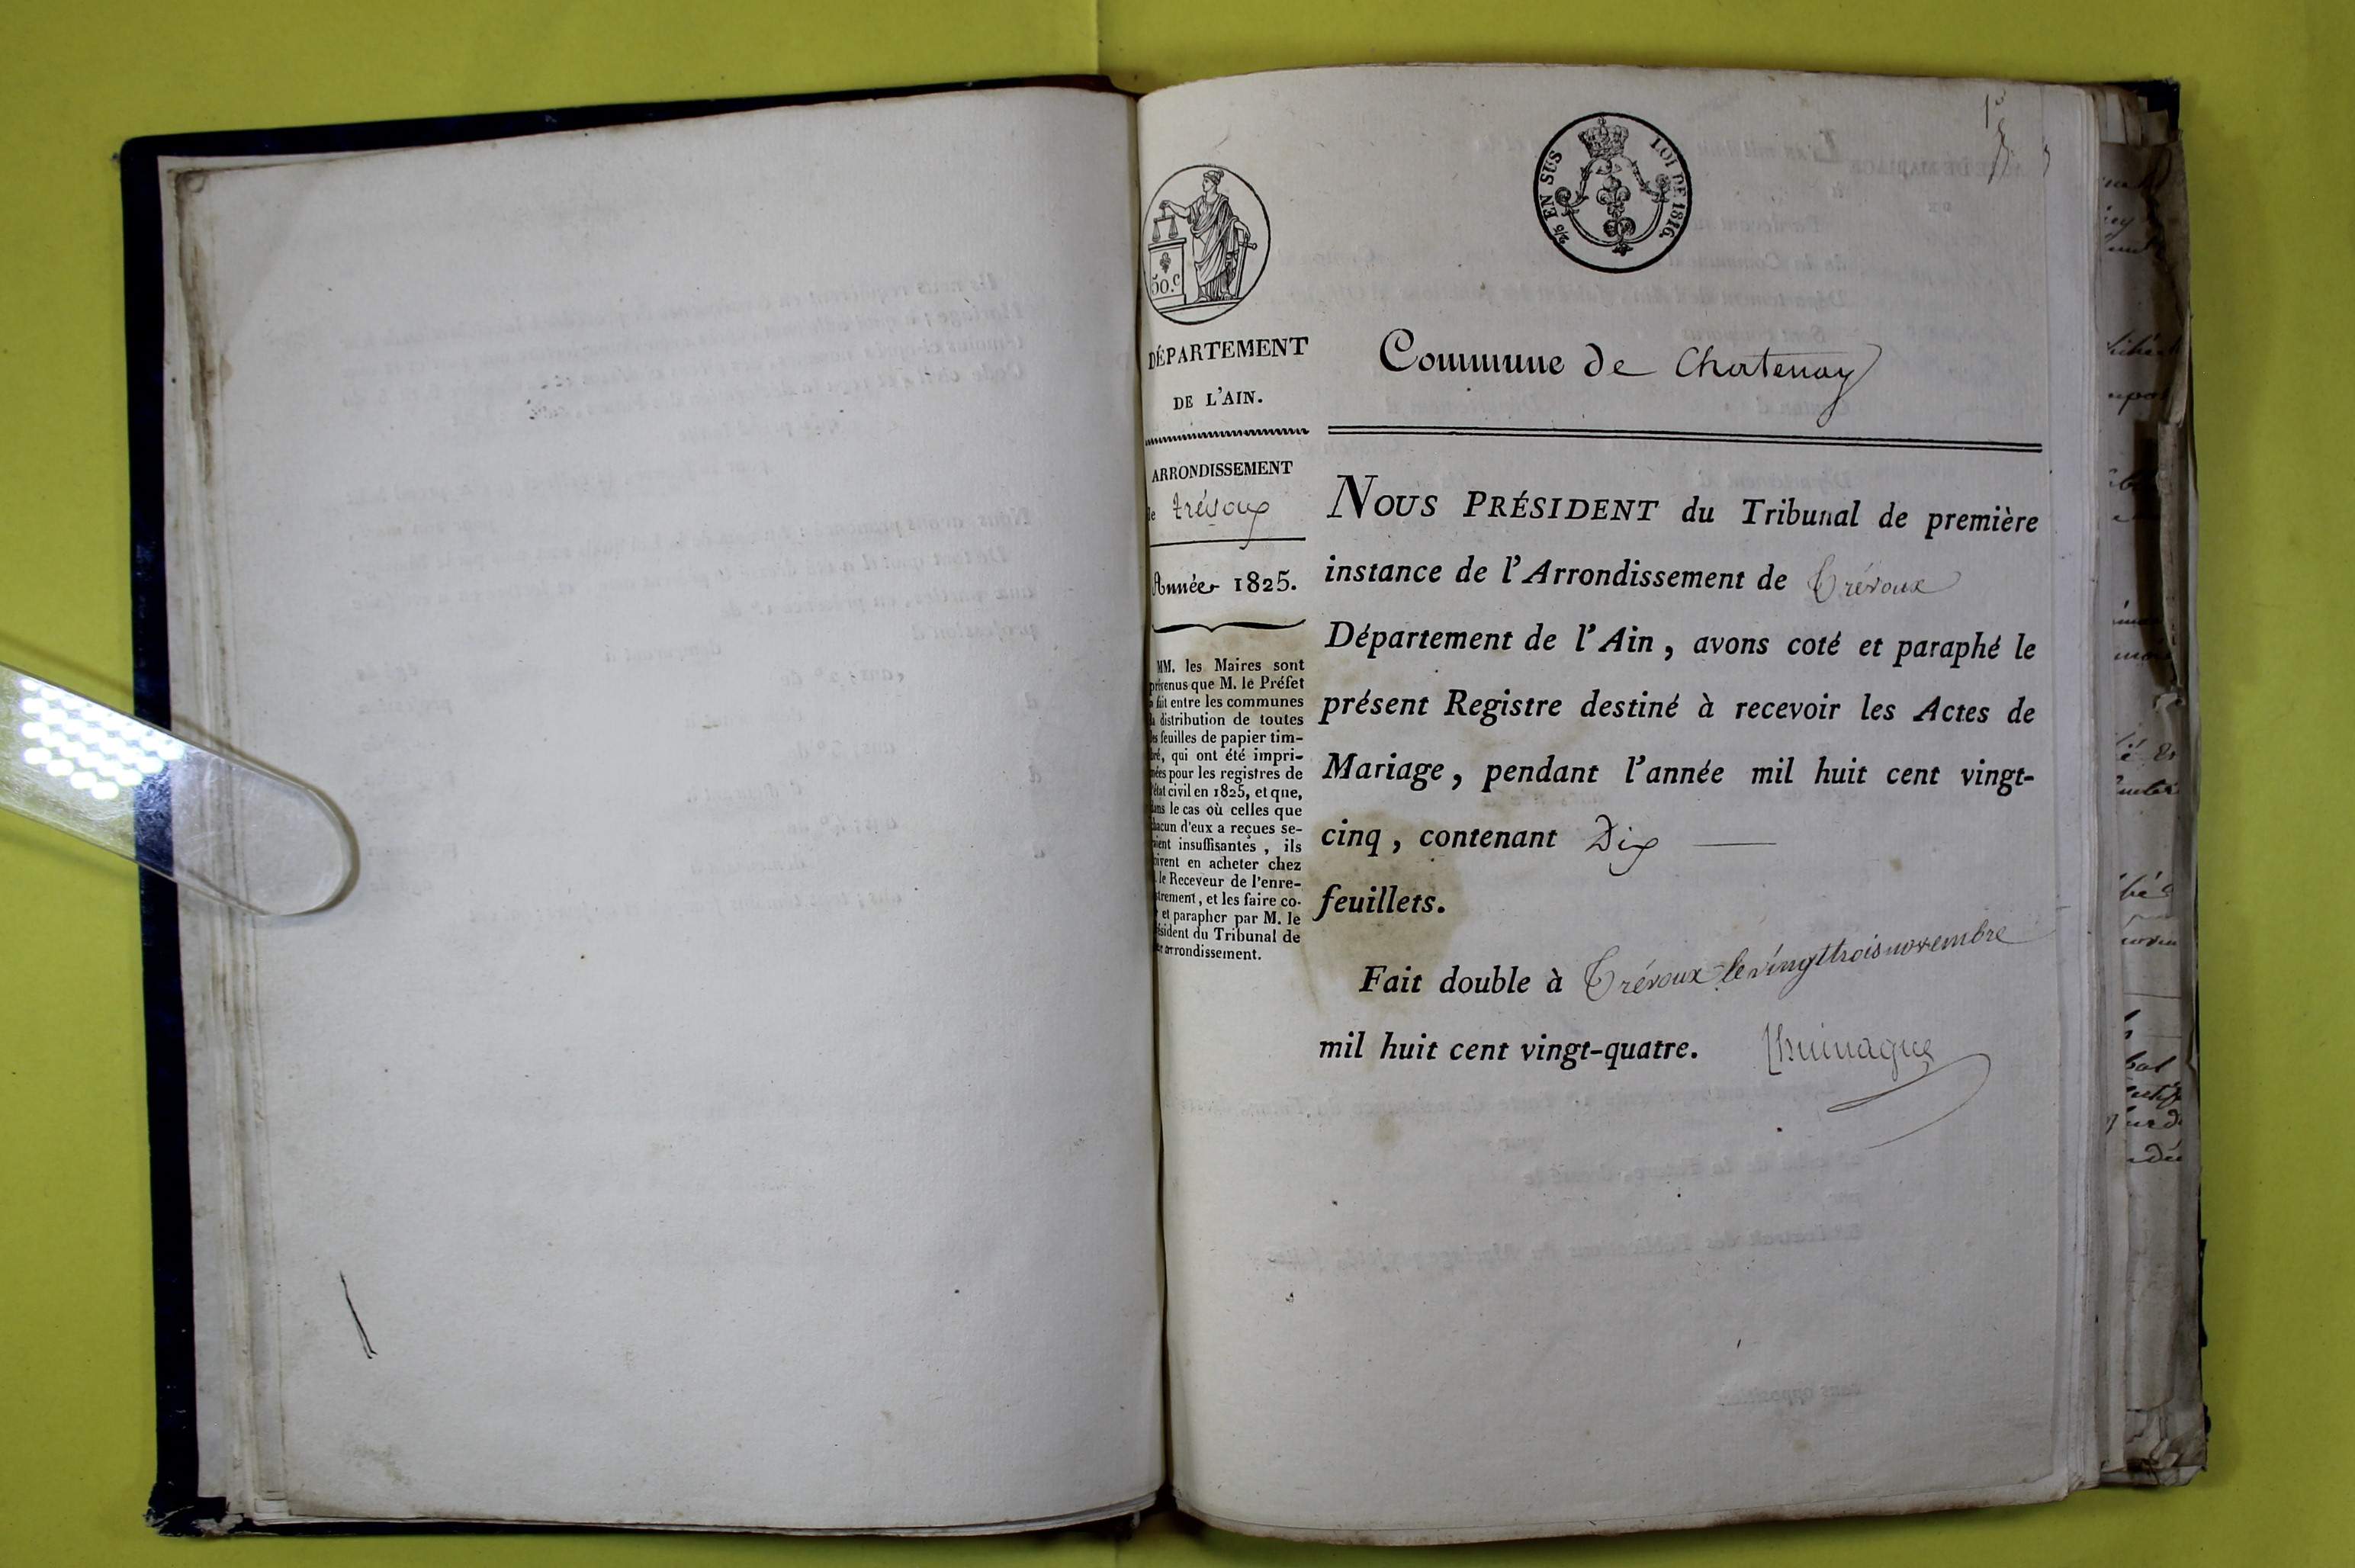 50.C
2/5 EN SUS LOI DE 1816.
DÉPARTEMENT
DE L'AIN.
ARRONDISSEMENT
de trévoux
Année 1825.
MM. les Maires sont
prévenus que M. le Préfet
fait entre les communes
la distribution de toutes
les feuilles de papier tim-
bré, qui ont été impri-
mées pour les registres de
l'état civil en 1825, et que,
dans le cas où celles que
chacun d'eux a reçues se-
raient insuffisantes, ils
doivent en acheter chez
le Receveur de l'enre-
gistrement, et les faire co-
et parapher par M. le
Président du Tribunal de
arrondissement.
Commune de Chatenay
NOUS PRÉSIDENT du Tribunal de première
instance de l'Arrondissement de Trévoux
Département de l'Ain, avons coté et paraphé le
présent Registre destiné à recevoir les Actes de
Mariage, pendant l'année mil huit cent vingt-
cinq, contenant Dix
feuillets.
Fait double à Trévoux le vingt trois novembre
mil huit cent vingt-quatre.